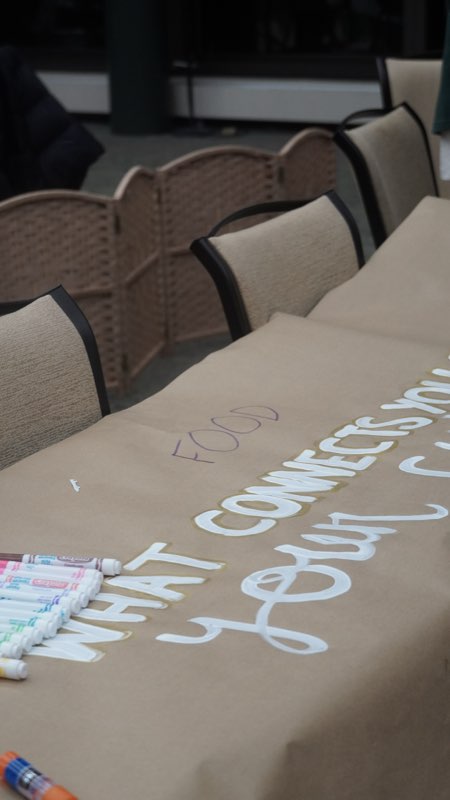 FOOD
WHAT CONNECTS YOU
your